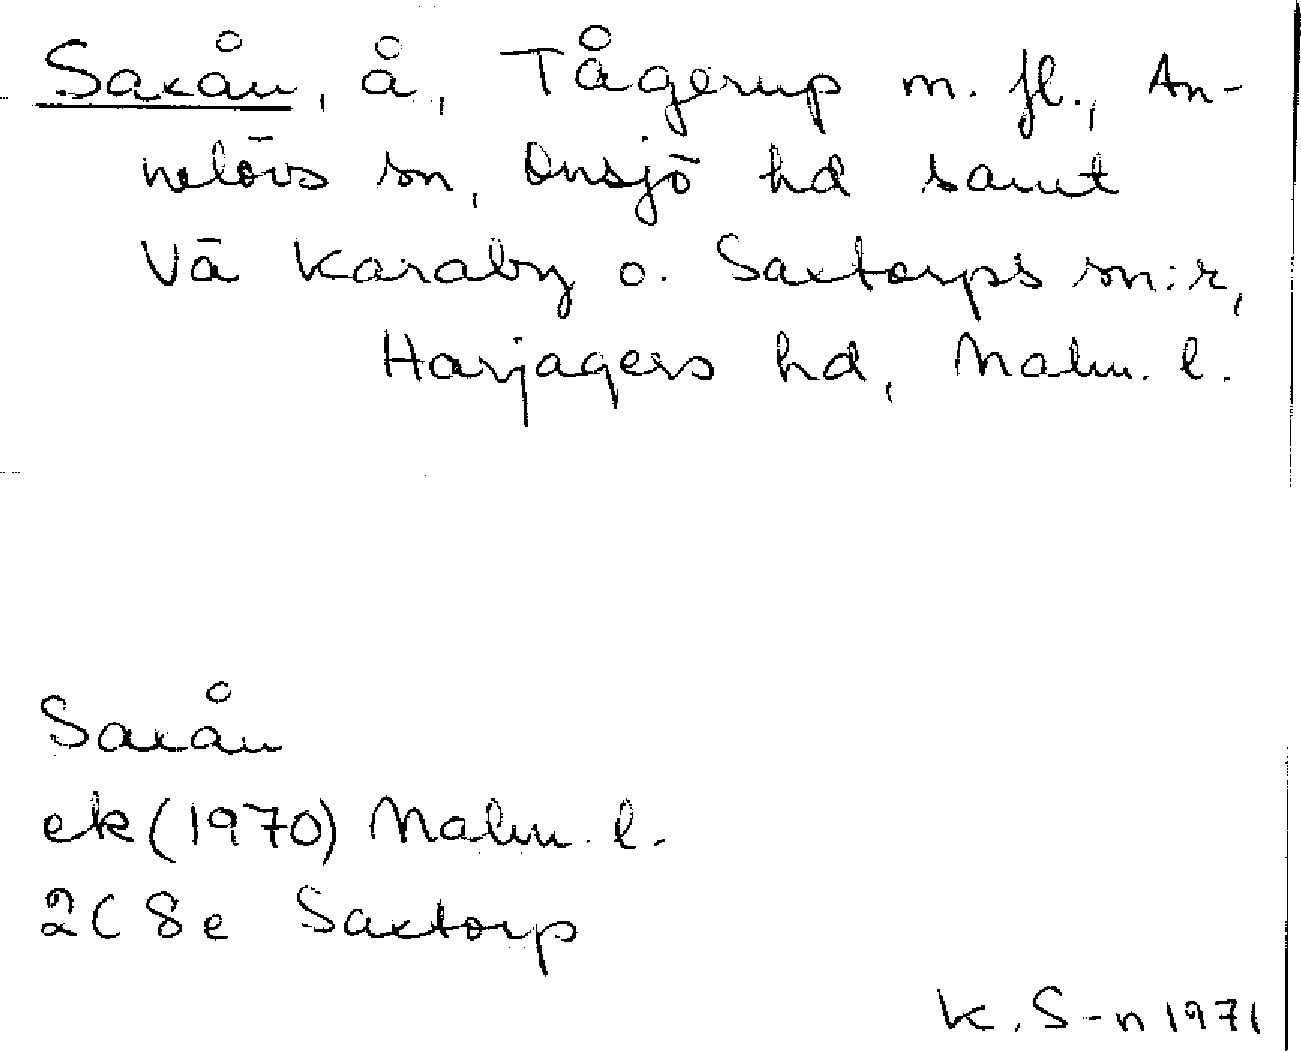 Saxån, å, Tågerup m. fl., An-
nelövs sn, Onsjö hd samt
Vä Karaby o. Saxtorps sn:r,
Harjagers hd, Malm. l.
Saxån
ek (1970) Malm. l.
2C 8e Saxtorp
K. S-n 1971